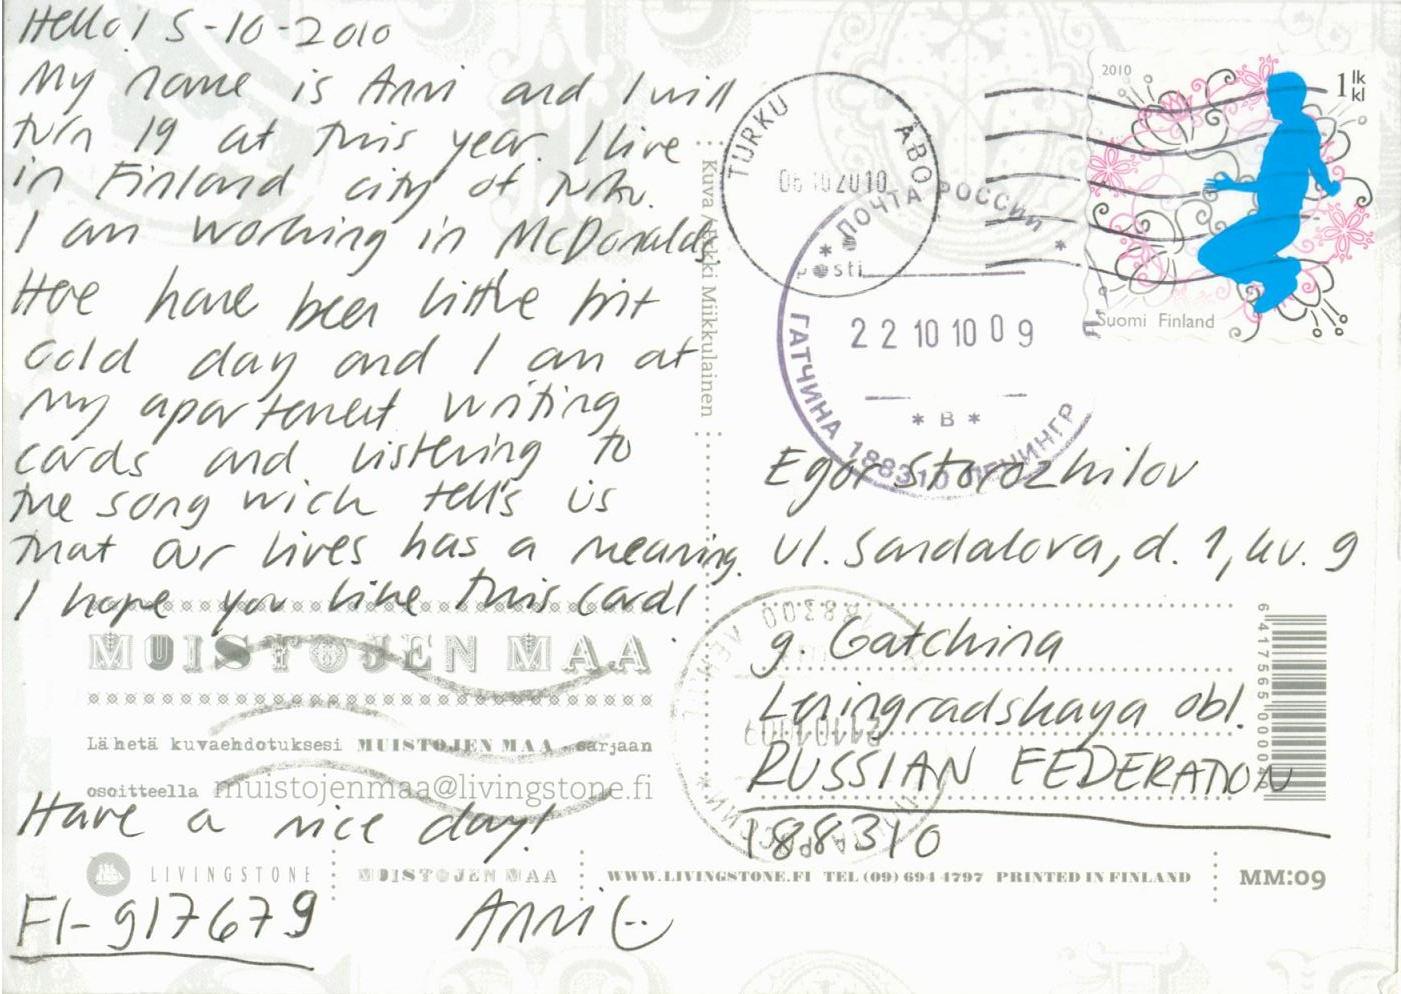 Hello! 5-10-2010
My name is Anni and I will
turn 19 at this year. I live
in Finland city of Turku.
I am working in McDonalds
Here have been little bit
cold day and I am at
my apartement writing
cards and listening to
the song wich tell's us
that our lives has a meaning.
I hope you like this card!
MUISTOJEN MAA
Lähetä kuvaehdotuksesi MUISTOJEN MAA -sarjaan
osoitteella muistojenmaa@livingstone.fi
Have a nice day!
LIVINGSTONE
MUISTOJEN MAA
WWW.LIVINGSTONE.FI TEL (09) 694 4797 PRINTED IN FINLAND
MM:09
FI-917679
Anni
Kuva Miikkulainen
TURKU ÅBO
06 10 2010
posti
ПОЧТА РОССИИ
22 10 10 09
* В *
ГАТЧИНА 188310 ЛЕНИНГР
2010
1 lk
kl
Suomi Finland
Egor Storozhilov
ul. Sandalova, d. 1, kv. 9
g. Gatchina
Leningradskaya obl.
RUSSIAN FEDERATION
188310